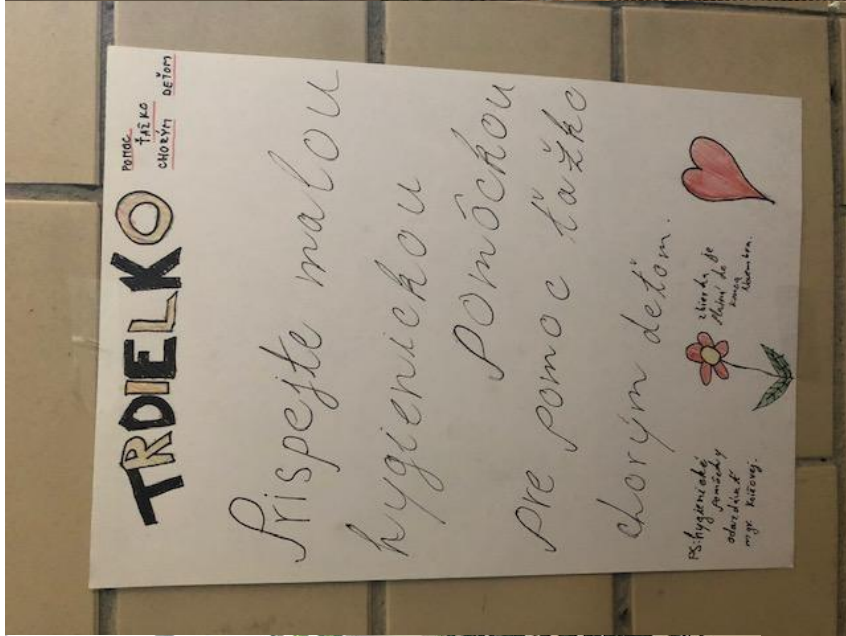 TRDIELKO
POMOC
ŤAŽKO
CHORÝM DEŤOM
Prispejte malou
hygienickou
pomôckou
pre pomoc ťažko
chorým deťom.
PS: hygienické
pomôcky
odovzdávať
mgr.
zbierka je
platná do
konca
Novembra.